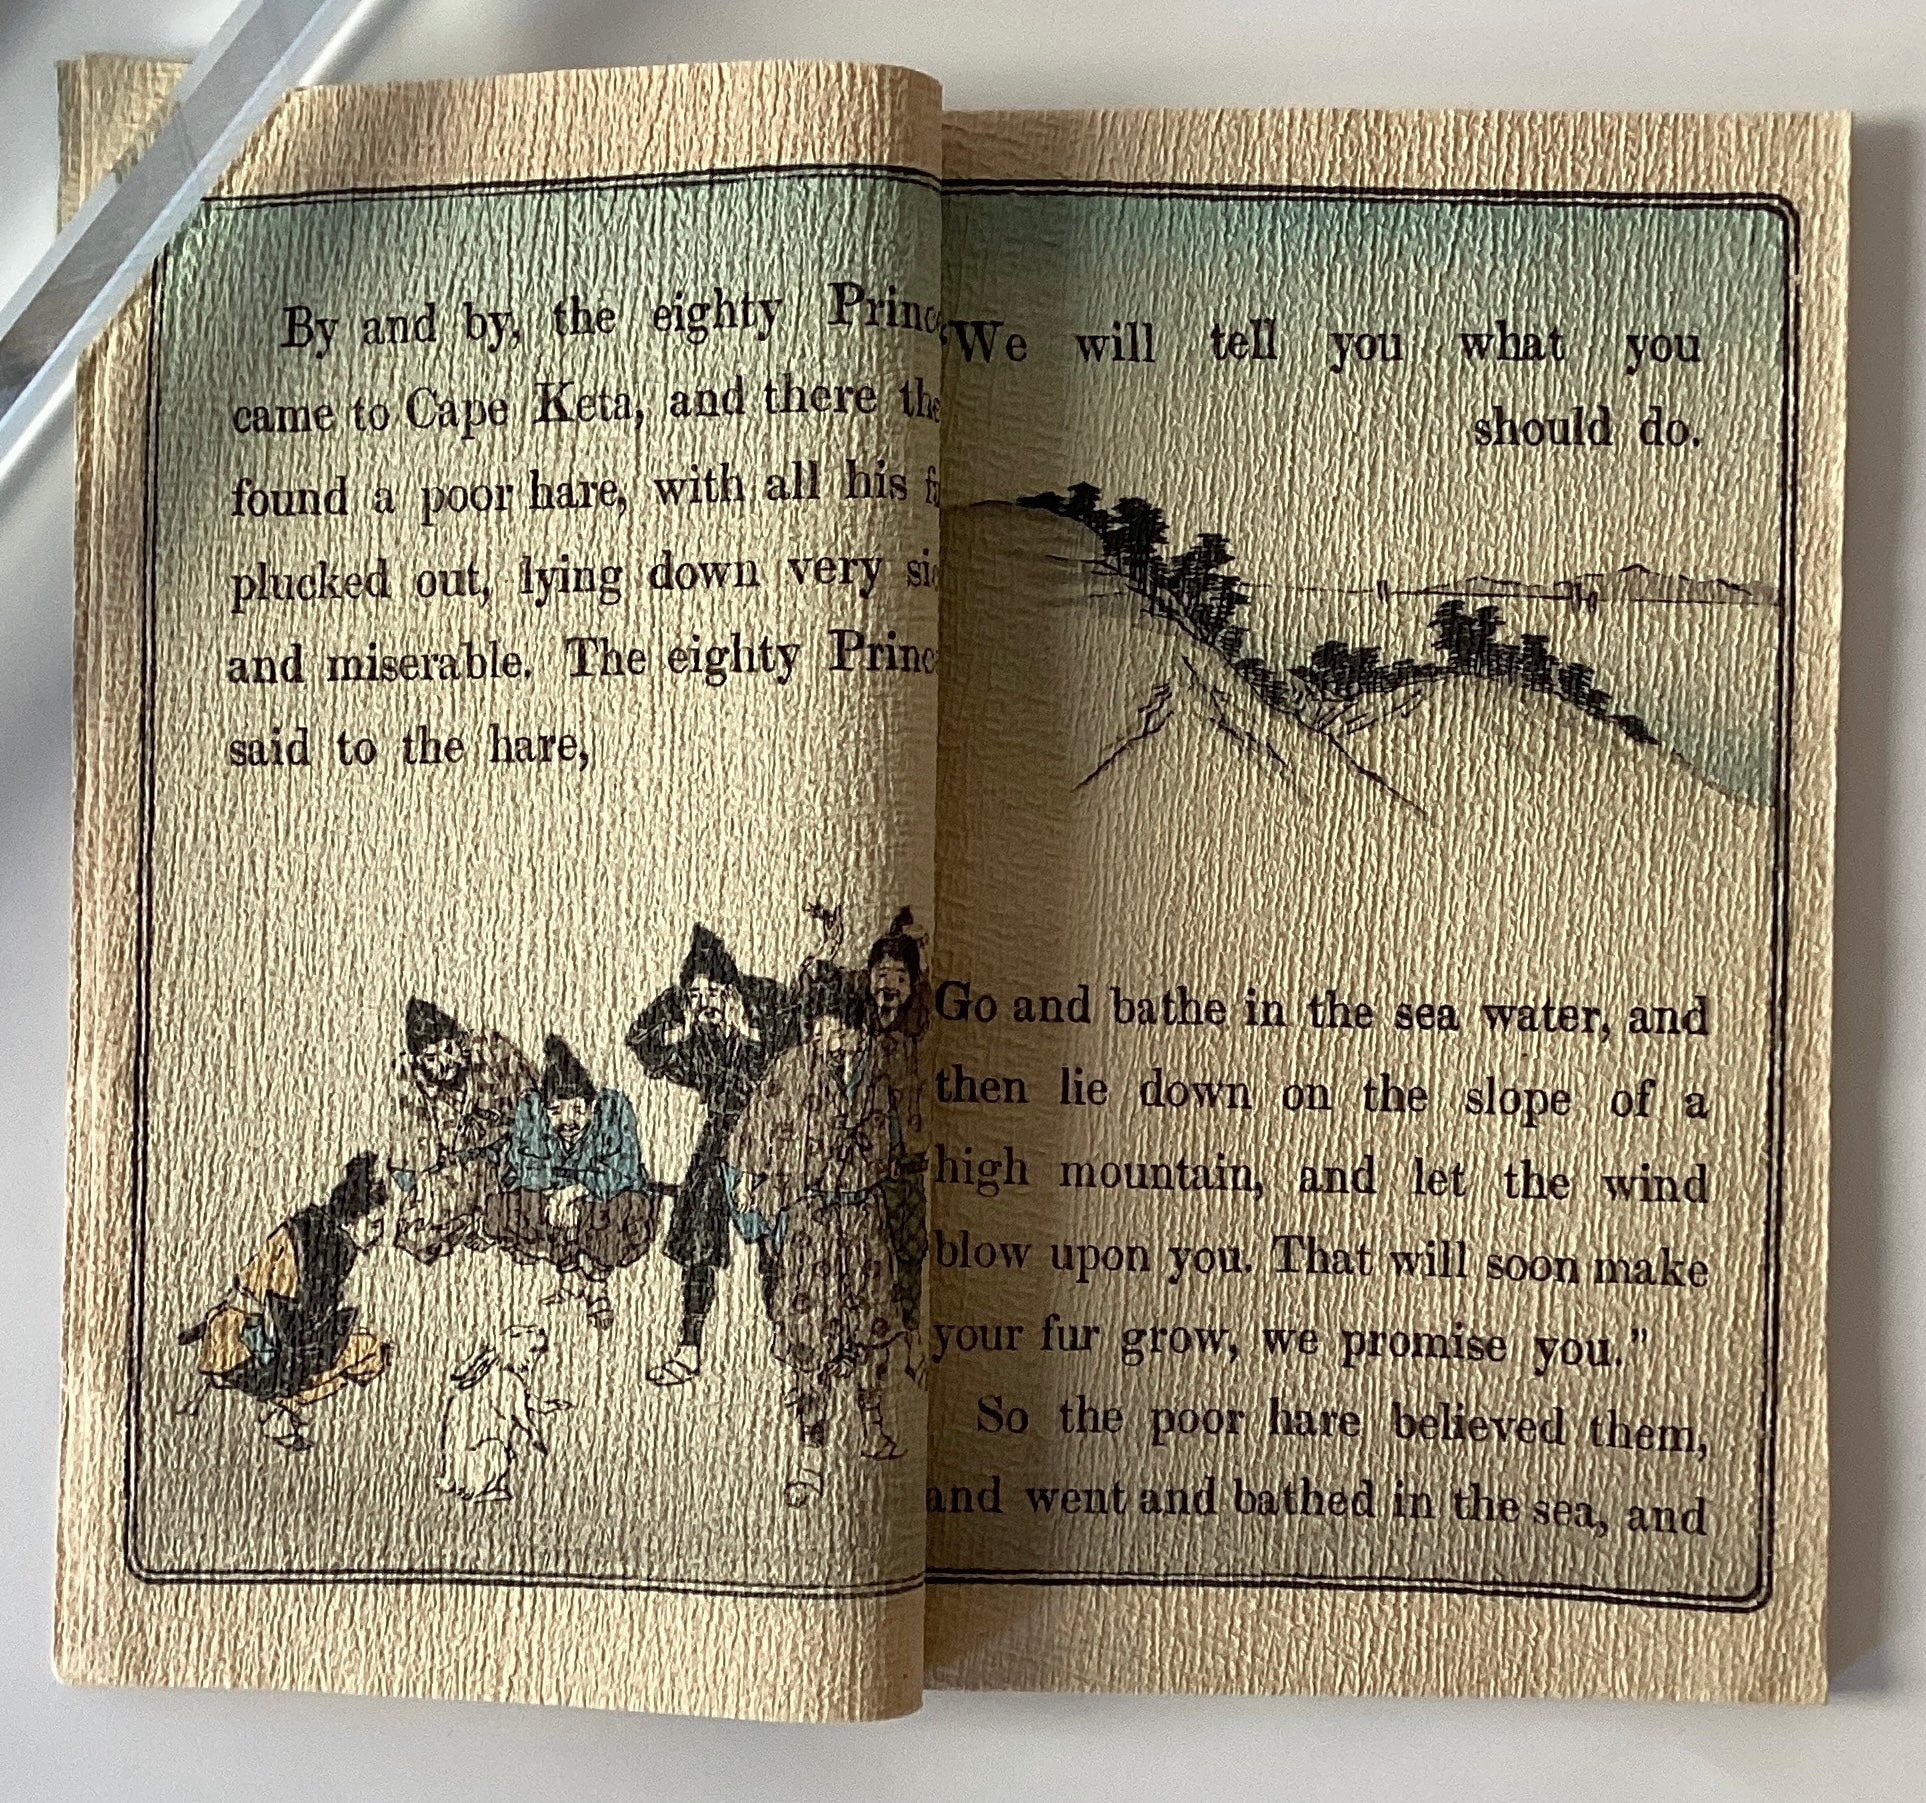 By and by, the eighty
came to Cape Keta, and there
found a poor hare, with all his
plucked out, lying down very
and miserable. The eighty
said to the hare,
“We will tell you what you
should do.
Go and bathe in the sea water, and
then lie down on the slope of a
high mountain, and let the wind
blow upon you. That will soon make
your fur grow, we promise you.”
So the poor hare believed them,
and went and bathed in the sea, and